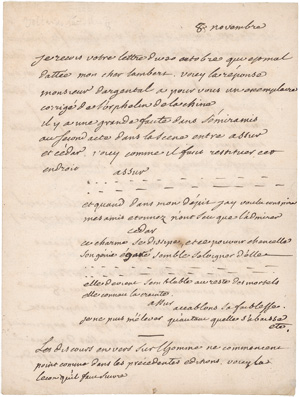 8e novembre
je recois votre lettre du 20 octobre qui est mal
dattée mon cher lambert. voicy la reponse
monsieur dargental a pour vous un exemplaire
corrigé de l'orphelin de la chine
il y a une grande faute dans semiramis
au second acte dans la scene entre assur
et cedar. voicy comme il faut restituer cet
endroit
assur
et quand dans mon depit jay voulu
mes amis etonnez n'ont sceu que l'admirer
cedar
ce charme se dissipe, et ce pouvoir chancelle
son genie egaré semble s'eloigner d'elle
elle devient semblable au reste des mortels
elle connait la crainte
assur
accablons sa faiblesse.
je ne puis m'elever qu'autant qu'elle s'abaisse
etc.
Les discours en vers sur l'homme ne commencent
point comme dans les precedentes editions, voicy la
lecon qu'il faut suivre